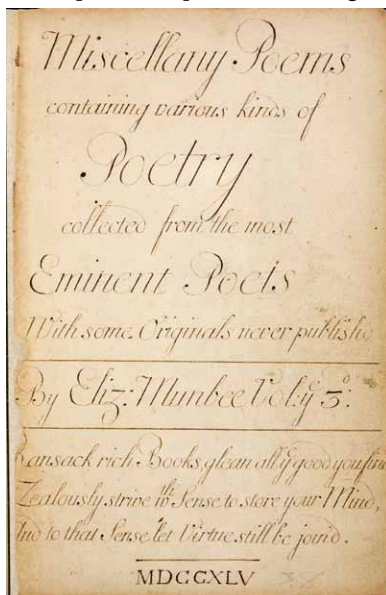 Miscellany Poems
containing various kinds of
Poetry
collected from the most
Eminent Poets
With some Originals never publish'd
By Eliz: Munbee Vol: yᵉ 3ᵈ:
Ransack rich Books, glean all yᵉ good you find
Zealously strive wᵗʰ Sense to store your Mind,
And to that Sense let Virtue still be joind.
MDCCXLV